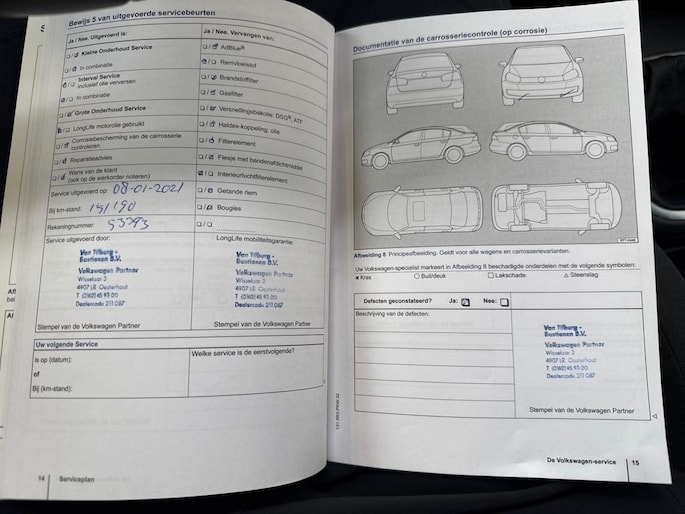 Bewijs 5 van uitgevoerde servicebeurten
Ja / Nee. Uitgevoerd is:
Kleine Onderhoud Service
In combinatie
Interval Service
inclusief olie verversen
In combinatie
Grote Onderhoud Service
LongLife motorolie gebruikt
Corrosiebescherming van de carrosserie
controleren
Reparatieadvies
Wens van de klant
(ook op de werkorder noteren)
Service uitgevoerd op: 08-01-2021
Bij km-stand:
Rekeningnummer:
Ja / Nee. Vervangen van:
AdBlue®
Remvloeistof
Brandstoffilter
Gasfilter
Versnellingsbakolie: DSG®, ATF
Haldex-koppeling: olie
Filterelement
Flesje met bandenafdichtmiddel
Interieurluchtfilterelement
Getande riem
Bougies
Service uitgevoerd door:
Van Tilburg -
Bastianen B.V.
Volkswagen Partner
Wisselaar 3
4907 LR Oosterhout
T (0162) 45 93 00
Dealercode 211 087
Stempel van de Volkswagen Partner
LongLife mobiliteitsgarantie:
Van Tilburg -
Bastianen B.V.
Volkswagen Partner
Wisselaar 3
4907 LR Oosterhout
T (0162) 45 93 00
Dealercode 211 087
Stempel van de Volkswagen Partner
Uw volgende Service
Is op (datum):
of
Bij (km-stand):
Welke service is de eerstvolgende?
14 Serviceplan
Documentatie van de carrosseriecontrole (op corrosie)
Afbeelding 8 Principeafbeelding. Geldt voor alle wagens en carrosserievarianten.
Uw Volkswagen-specialist markeert in Afbeelding 8 beschadigde onderdelen met de volgende symbolen:
× Kras ○ Buil/deuk □ Lakschade △ Steenslag
Defecten geconstateerd? Ja: Nee:
Beschrijving van de defecten:
Van Tilburg -
Bastianen B.V.
Volkswagen Partner
Wisselaar 3
4907 LR Oosterhout
T (0162) 45 93 00
Dealercode 211 087
Stempel van de Volkswagen Partner
De Volkswagen-service 15